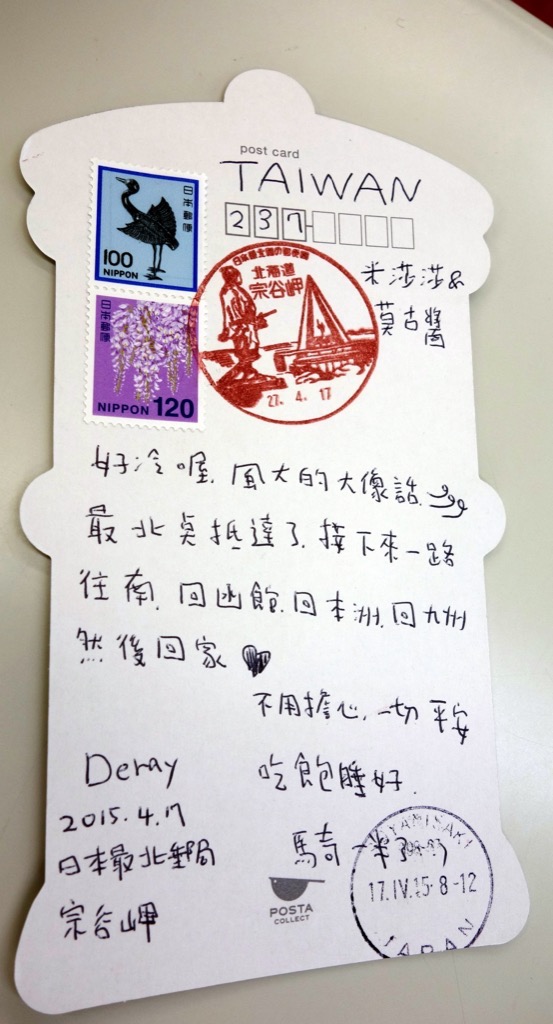 post card
TAIWAN
237
日本郵便
100
NIPPON
日本郵便
NIPPON 120
日本最北端の郵便局
北海道
宗谷岬
27. 4. 17
米莎莎&
莫古醬
好冷喔. 風大的大像話.
最北点抵達了. 接下來一路
往南. 回函館. 回本洲. 回九州
然後回家
不用擔心. 一切平安
吃飽睡好.
Deray
2015.4.17
日本最北郵局
宗谷岬
馬奇一半了
POSTA
COLLECT
YAMISAKI
17.IV.15·8-12
JAPAN